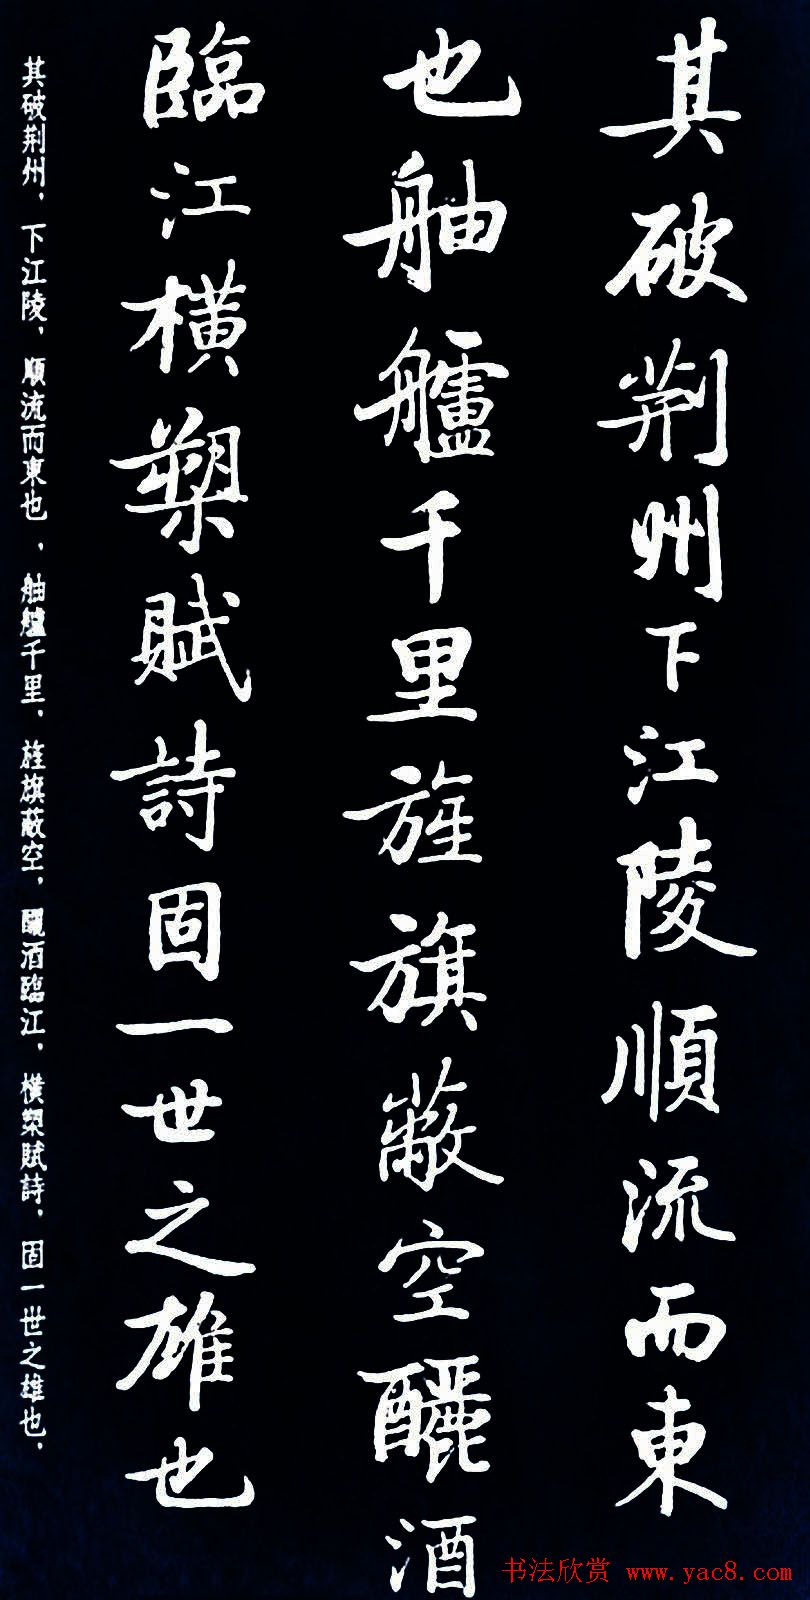 其破荆州下江陵順流而東
也舳艫千里旌旗蔽空釃酒
臨江橫槊賦詩固一世之雄也
其破荆州，下江陵，順流而東也，舳艫千里，旌旗蔽空，釃酒臨江，橫槊賦詩，固一世之雄也，
书法欣赏 www.yac8.com